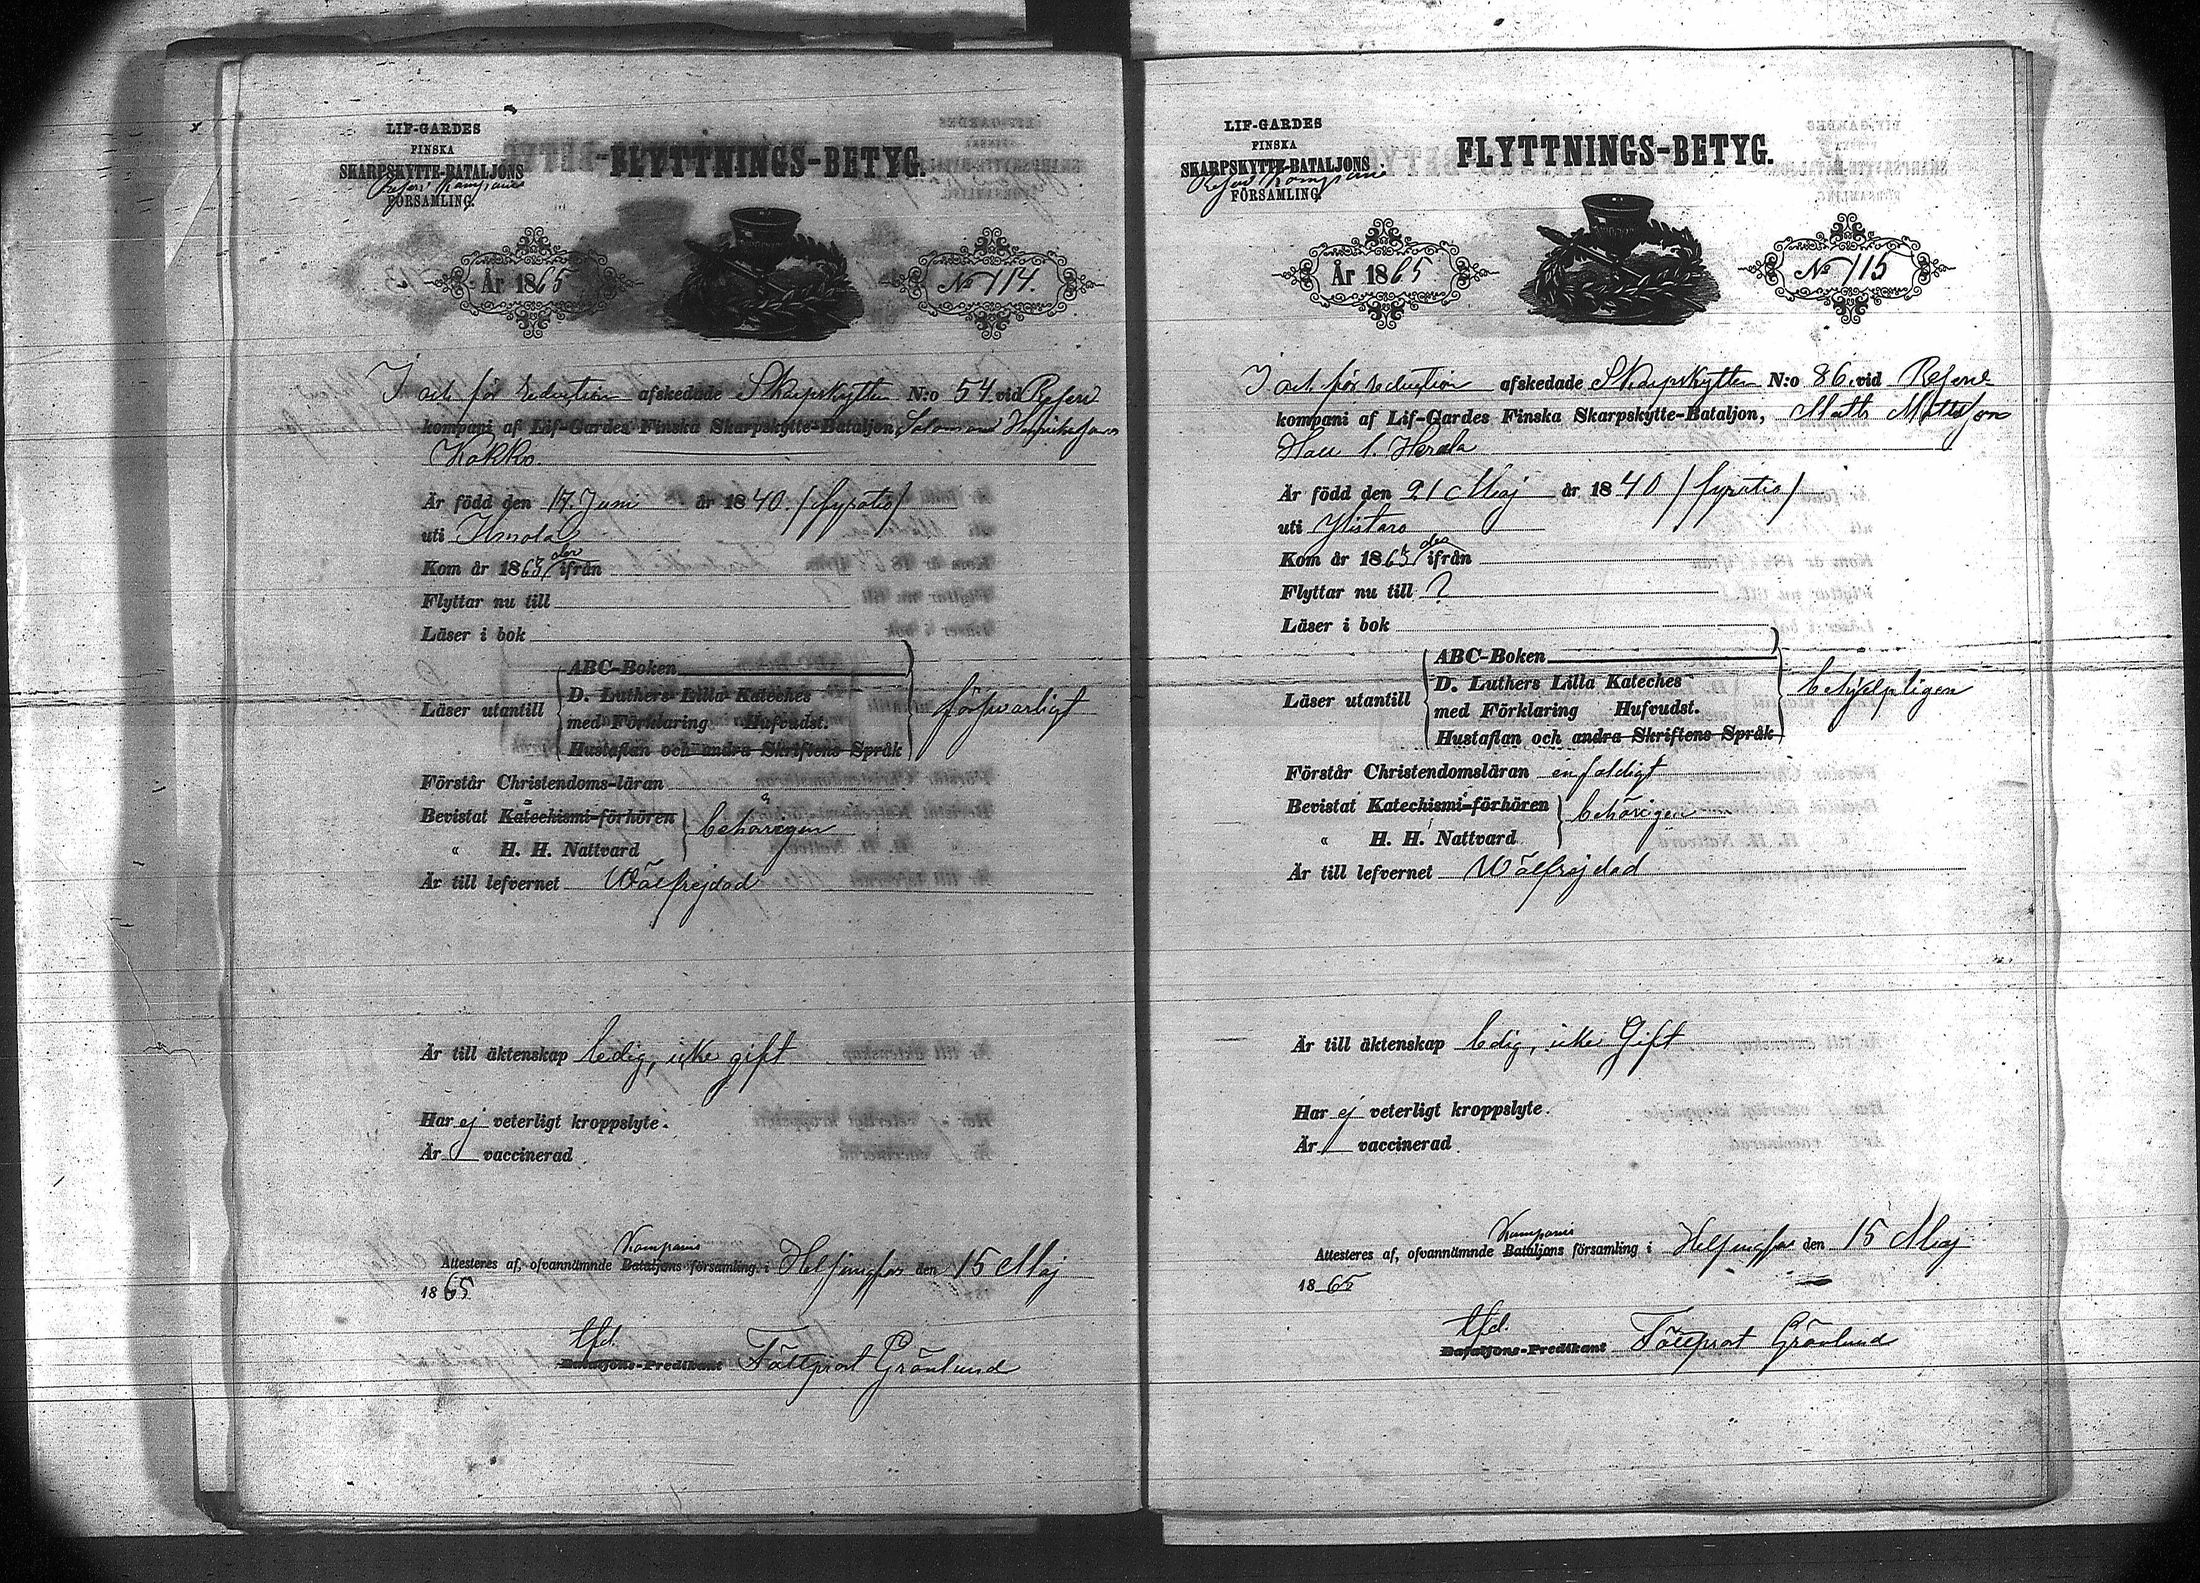 LIF-GARDES
FINSKA
SKARPSKYTTE-BATALJONS
Reserv Kompanies
FÖRSAMLING.
FLYTTNINGS-BETYG.
År 1865
No 114.
I och för reduction afskedade Skarpskytten N:o 54 vid Reserv
kompani af Lif-Gardes Finska Skarpskytte-Bataljon, Salomon Henriksson
Kokko.
Är född den 17 Juni år 1840. /fyratio/
uti Ilmola
Kom år 1863 ifrån
Flyttar nu till
Läser i bok
Läser utantill
ABC-Boken
D. Luthers Lilla Kateches
med Förklaring Hufvudst.
Hustaflan och andra Skriftens Språk
försvarligt
Förstår Christendoms-läran
Bevistat Katechismi-förhören
" H. H. Nattvard
behörigen
Är till lefvernet Välfrejdad
Är till äktenskap ledig, icke gift
Har ej veterligt kroppslyte.
Är vaccinerad
Kompanis
Attesteres af, ofvannämnde Bataljons församling i Helsingfors den 15 Maj
1865
tfd.
Bataljons-Predikant Fältprost Grönlund
LIF-GARDES
FINSKA
SKARPSKYTTE-BATALJONS
Reserv Kompanies
FÖRSAMLING
FLYTTNINGS-BETYG.
År 1865
No 115
I och för reduction afskedade Skarpskytten N:o 86. vid Reserv
kompani af Lif-Gardes Finska Skarpskytte-Bataljon, Matts Mattsson
Är född den 21 Maj år 1840 /fyratio/
uti Ylistaro
Kom år 1863 ifrån
Flyttar nu till ?
Läser i bok
Läser utantill
ABC-Boken
D. Luthers Lilla Kateches
med Förklaring Hufvudst.
Hustaflan och andra Skriftens Språk
behjelpligen
Förstår Christendomsläran enfaldigt
Bevistat Katechismi-förhören
" H. H. Nattvard
behörigen
Är till lefvernet Wälfrejdad
Är till äktenskap ledig, icke Gift
Har ej veterligt kroppslyte.
Är vaccinerad
Kompanis
Attesteres af, ofvannämnde Bataljons församling i Helsingfors den 15 Maj
1865
tfd.
Bataljons-Predikant Fältprost Grönlund